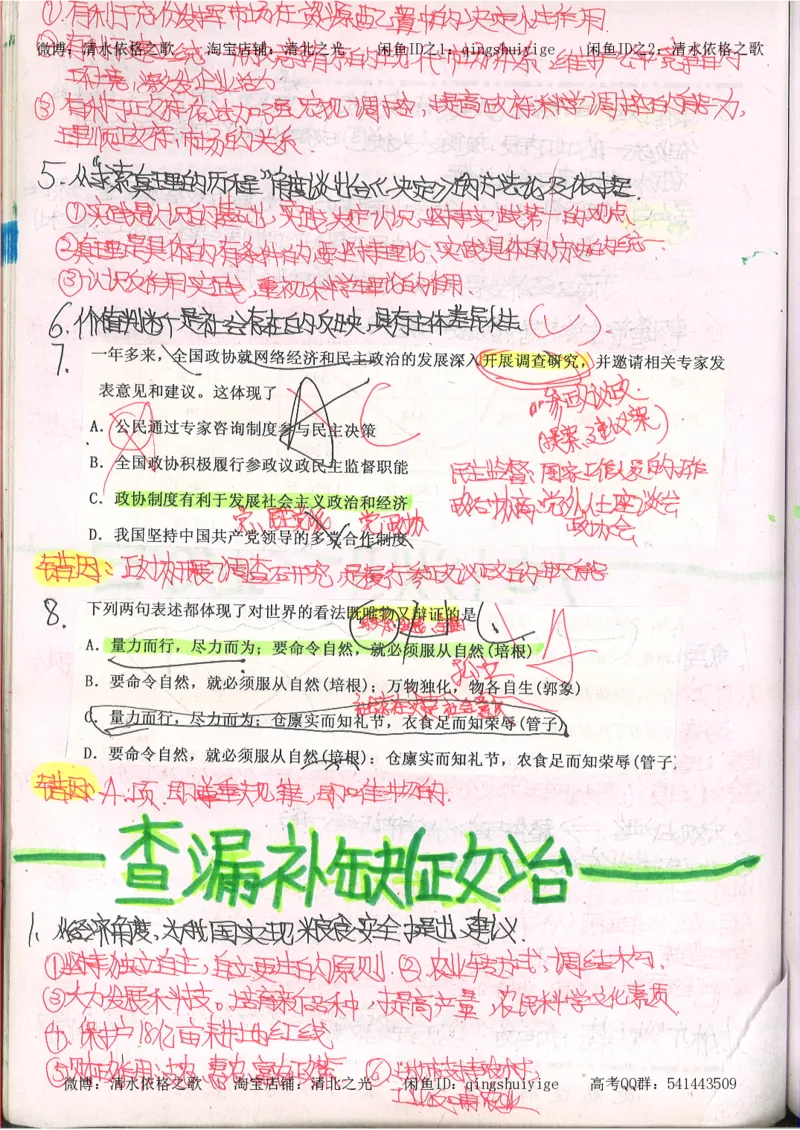 ①有利于充分发挥市场在资源配置中的决定性作用.
微博：清水依格之歌 淘宝店铺：清北之光 闲鱼ID之1：qingshuiyige 闲鱼ID之2：清水依格之歌
环境,激发企业活力
③有利于政府 宏观调控,提高政府科学调控的能力,
理顺政府,市场的关系.
5.从"求索真理的历程"角度谈出台《决定》的方法论依据.
①实践是认识的基础,实践决定认识,坚持实践第一的观点
②真理是具体的有条件的,要坚持理论、实践具体的历史的统一
③认识反作用实践,重视科学理论的作用.
6.价值判断是社会存在的反映,具有主体差异性
7.
一年多来，全国政协就网络经济和民主政治的发展深入开展调查研究，并邀请相关专家发
表意见和建议。这体现了
A
C
参政议政
(提案、建议案)
A．公民通过专家咨询制度参与民主决策
B．全国政协积极履行参政议政民主监督职能
民主监督:国家工作人员的工作
C．政协制度有利于发展社会主义政治和经济
政治协商:党外人士座谈会
政协会
D．我国坚持中国共产党领导的多党合作制度
错因:政协开展了调查研究,是履行参政议政的职能
8.
下列两句表述都体现了对世界的看法既唯物又辩证的是
A
A．量力而行，尽力而为；要命令自然，就必须服从自然(培根)
孤立
B．要命令自然，就必须服从自然(培根)；万物独化，物各自生(郭象)
社会存在决定社会意识
C．量力而行，尽力而为；仓廪实而知礼节，衣食足而知荣辱(管子)
D．要命令自然，就必须服从自然(培根)：仓廪实而知礼节，衣食足而知荣辱(管子)
错因:A项,即尊重规律,即唯物的.
查漏补缺政治
1.从经济角度,为我国实现粮食安全提出建议.
①坚持独立自主,自力更生的原则.②农业生产方式,调结构.
③大力发展科技.培育新品种,提高产量,农民科学文化素质
④.保护18亿亩耕地红线
⑤财政作用:支农,惠农,富农政策 ⑥城市支持农村,
工业反哺农业
微博：清水依格之歌 淘宝店铺：清北之光 闲鱼ID：qingshuiyige 高考QQ群：541443509